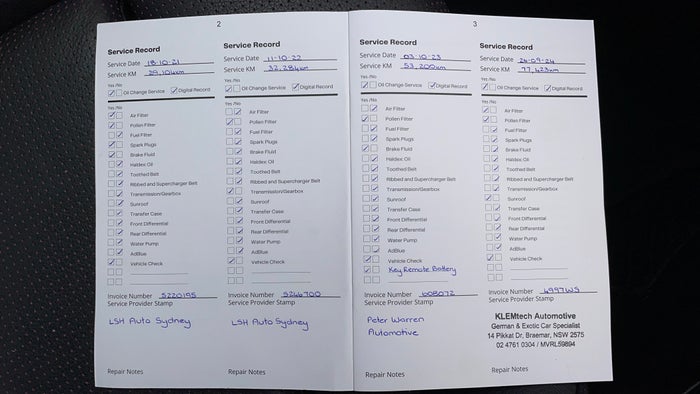 2
Service Record
Service Date 18-10-21
Service KM 29,104km
Yes /No
Oil Change Service Digital Record
Yes /No
Air Filter
Pollen Filter
Fuel Filter
Spark Plugs
Brake Fluid
Haldex Oil
Toothed Belt
Ribbed and Supercharger Belt
Transmission/Gearbox
Sunroof
Transfer Case
Front Differential
Rear Differential
Water Pump
AdBlue
Vehicle Check
Invoice Number 5220195
Service Provider Stamp
LSH Auto Sydney
Repair Notes
Service Record
Service Date 11-10-22
Service KM 32,284km
Yes /No
Oil Change Service Digital Record
Yes /No
Air Filter
Pollen Filter
Fuel Filter
Spark Plugs
Brake Fluid
Haldex Oil
Toothed Belt
Ribbed and Supercharger Belt
Transmission/Gearbox
Sunroof
Transfer Case
Front Differential
Rear Differential
Water Pump
AdBlue
Vehicle Check
Invoice Number 5246700
Service Provider Stamp
LSH Auto Sydney
Repair Notes
3
Service Record
Service Date 03-10-23
Service KM 53,200km
Yes /No
Oil Change Service Digital Record
Yes /No
Air Filter
Pollen Filter
Fuel Filter
Spark Plugs
Brake Fluid
Haldex Oil
Toothed Belt
Ribbed and Supercharger Belt
Transmission/Gearbox
Sunroof
Transfer Case
Front Differential
Rear Differential
Water Pump
AdBlue
Vehicle Check
Key Remote Battery
Invoice Number 608072
Service Provider Stamp
Peter Warren
Automotive
Repair Notes
Service Record
Service Date 24-09-24
Service KM 77,423km
Yes /No
Oil Change Service Digital Record
Yes /No
Air Filter
Pollen Filter
Fuel Filter
Spark Plugs
Brake Fluid
Haldex Oil
Toothed Belt
Ribbed and Supercharger Belt
Transmission/Gearbox
Sunroof
Transfer Case
Front Differential
Rear Differential
Water Pump
AdBlue
Vehicle Check
Invoice Number
Service Provider Stamp
KLEMtech Automotive
German & Exotic Car Specialist
14 Pikkat Dr, Braemar, NSW 2575
02 4761 0304 / MVRL59894
Repair Notes